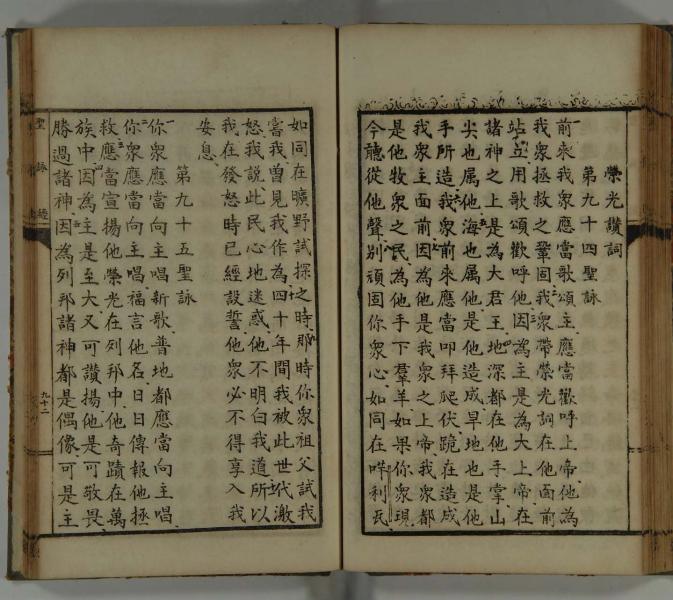 榮光讚詞
第九十四聖詠
前來我衆應當歌頌主應當歡呼上帝他為
我衆拯救之鞏固我衆帶榮光詞在他面前
站立用歌頌歡呼他因為主是為大上帝在
諸神之上是為大君王地深都在他手掌山
尖也属他海也属他是他造成旱地也是他
手所造我衆前來應當叩拜爬伏跪在造成
我衆主面前因為他是我衆之上帝我衆都
是他牧衆之民為他手下羣羊如果你衆現
今聽從他聲别頑固你衆心如同在咩利瓦
如同在曠野試探之時那時你衆祖父試我
嘗我曽見我作為四十年間我被此世代激
怒我說此民心地迷惑他不明白我道所以
我在發怒時已經設誓他衆必不得享入我
安息
第九十五聖詠
你衆應當向主唱新歌普地都應當向主唱
你衆應當向主唱福言他名日日傳報他拯
救應當宣揚他榮光在列邦中他奇蹟在萬
族中因為主是至大又可讃揚他是可敬畏
勝過諸神因為列邦諸神都是偶像可是主
聖詠經
九十二